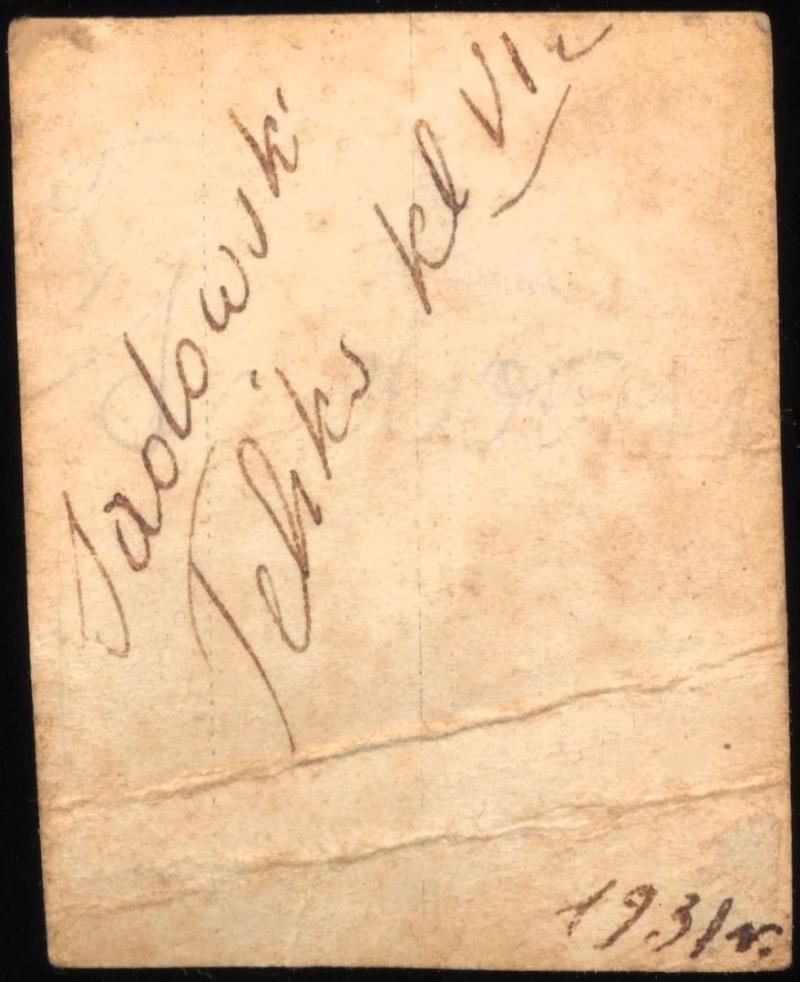 Sadowski
Feliks kl VIc
1931 r.